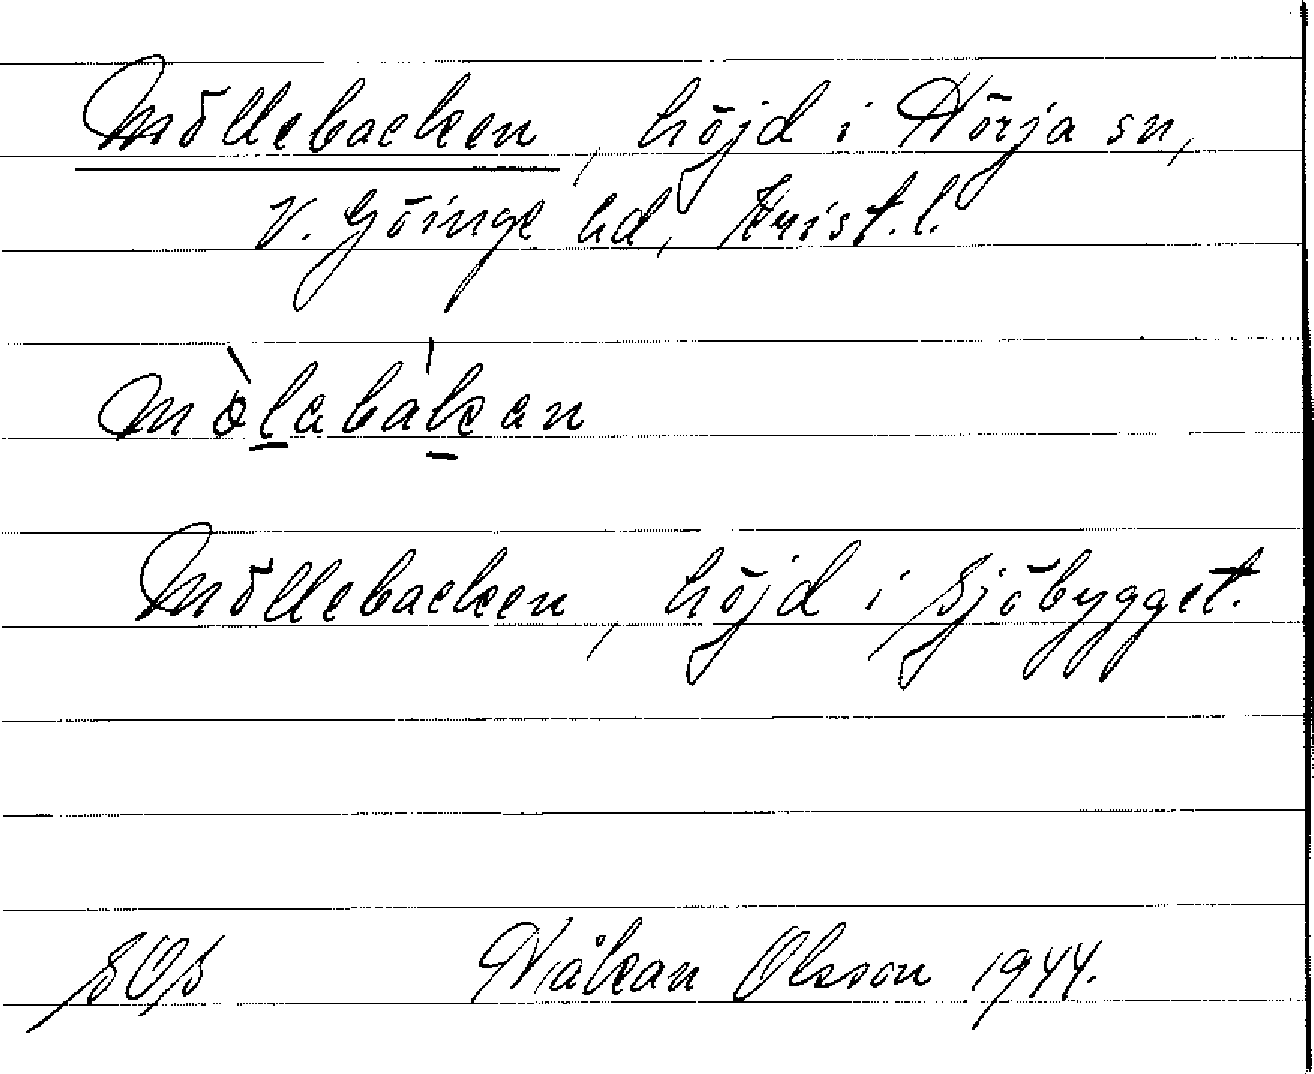 Möllebacken, höjd i Hörja sn,
V. Göinge hd, Krist. l.
mòlabákan
Möllebacken, höjd i Sjöbygget.
SOS Håkan Olsson 1944.